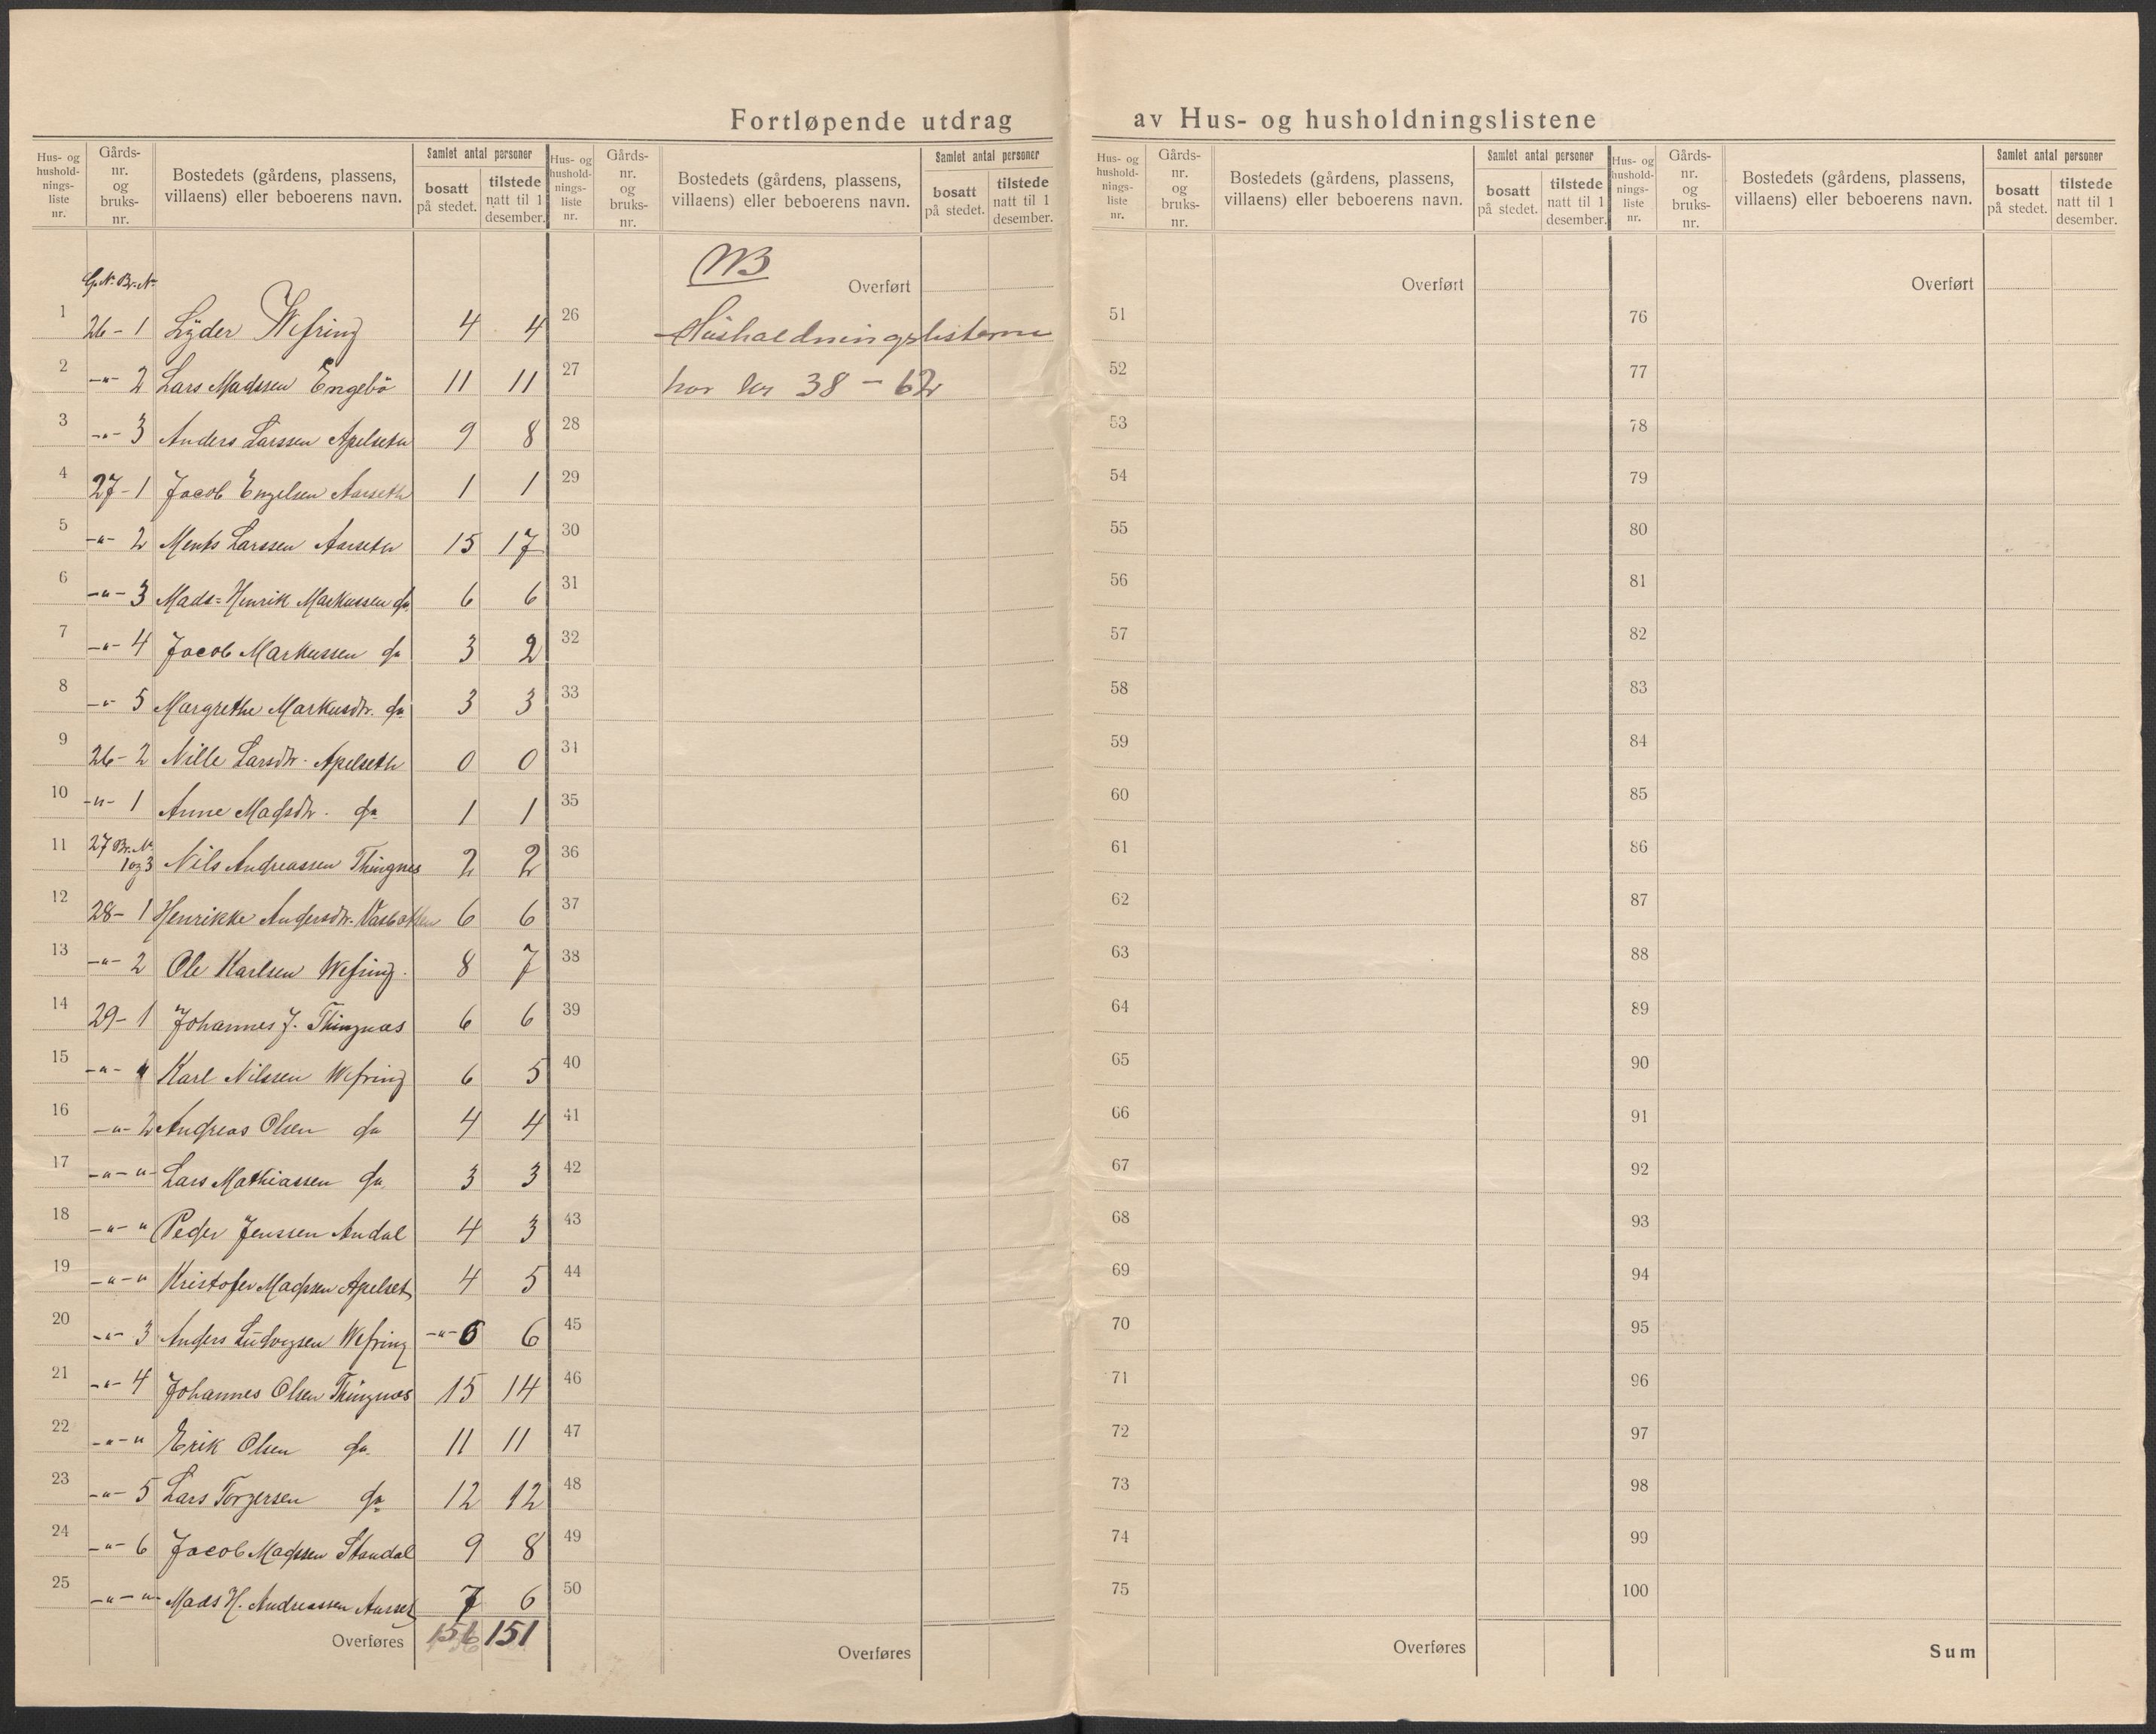 Fortløpende utdrag av Hus- og husholdningslistene
Hus- og husholdnings-liste nr. Gårds-nr. og bruks-nr. Bostedets (gårdens, plassens, villaens) eller beboerens navn. Samlet antal personer bosatt på stedet. tilstede natt til 1 desember.
Hus- og husholdnings-liste nr. Gårds-nr. og bruks-nr. Bostedets (gårdens, plassens, villaens) eller beboerens navn. Samlet antal personer bosatt på stedet. tilstede natt til 1 desember.
Hus- og husholdnings-liste nr. Gårds-nr. og bruks-nr. Bostedets (gårdens, plassens, villaens) eller beboerens navn. Samlet antal personer bosatt på stedet. tilstede natt til 1 desember.
Hus- og husholdnings-liste nr. Gårds-nr. og bruks-nr. Bostedets (gårdens, plassens, villaens) eller beboerens navn. Samlet antal personer bosatt på stedet. tilstede natt til 1 desember.
G.N. Br.N.
1 26-1 Lyder Wefring 4 4
2 -"- 2 Lars Madssen Engebö 11 11
3 -"- 3 Anders Larssen Apelseth 9 8
4 27-1 Jacob Engelsen Aarseth 1 1
5 -"- 2 Ments Larssen Aarseth 15 17
6 -"- 3 Mads=Henrik Markussen do 6 6
7 -"- 4 Jacob Markussen do 3 2
8 -"- 5 Margrethe Markusdtr. do 3 3
9 26-2 Nille Larsdtr. Apelseth 0 0
10 -"- 1 Anne Madsdtr. do 1 1
11 27 Br.N. 1 og 3 Nils Andreassen Thingnes 2 2
12 28-1 Henrikke Andersdtr. Vasbotten 6 6
13 -"- 2 Ole Karlsen Wefring. 8 7
14 29-1 Johannes J. Thingnæs 6 6
15 -"- " Karl Nilssen Wefring 6 5
16 -"- 2 Andreas Olsen do 4 4
17 -"- " Lars Mathiassen do 3 3
18 -"- " Peder Jenssen Andal 4 3
19 -"- " Kristofer Madssen Apelset 4 5
20 -"- 3 Anders Ludvigsen Wefring -"- 6 6
21 -"- 4 Johannes Olsen Thingnæs 15 14
22 -"- " Erik Olsen do. 11 11
23 -"- 5 Lars Torgersen do 12 12
24 -"- 6 Jacob Madssen Standal 9 8
25 -"- " Mads H. Andreassen Aarset 7 6
Overføres 156 151
NB
Overført
26 Husholdningslisterne
27 har lnr 38 - 62
28
29
30
31
32
33
34
35
36
37
38
39
40
41
42
43
44
45
46
47
48
49
50
Overføres
Overført
51
52
53
54
55
56
57
58
59
60
61
62
63
64
65
66
67
68
69
70
71
72
73
74
75
Overføres
Overført
76
77
78
79
80
81
82
83
84
85
86
87
88
89
90
91
92
93
94
95
96
97
98
99
100
Sum